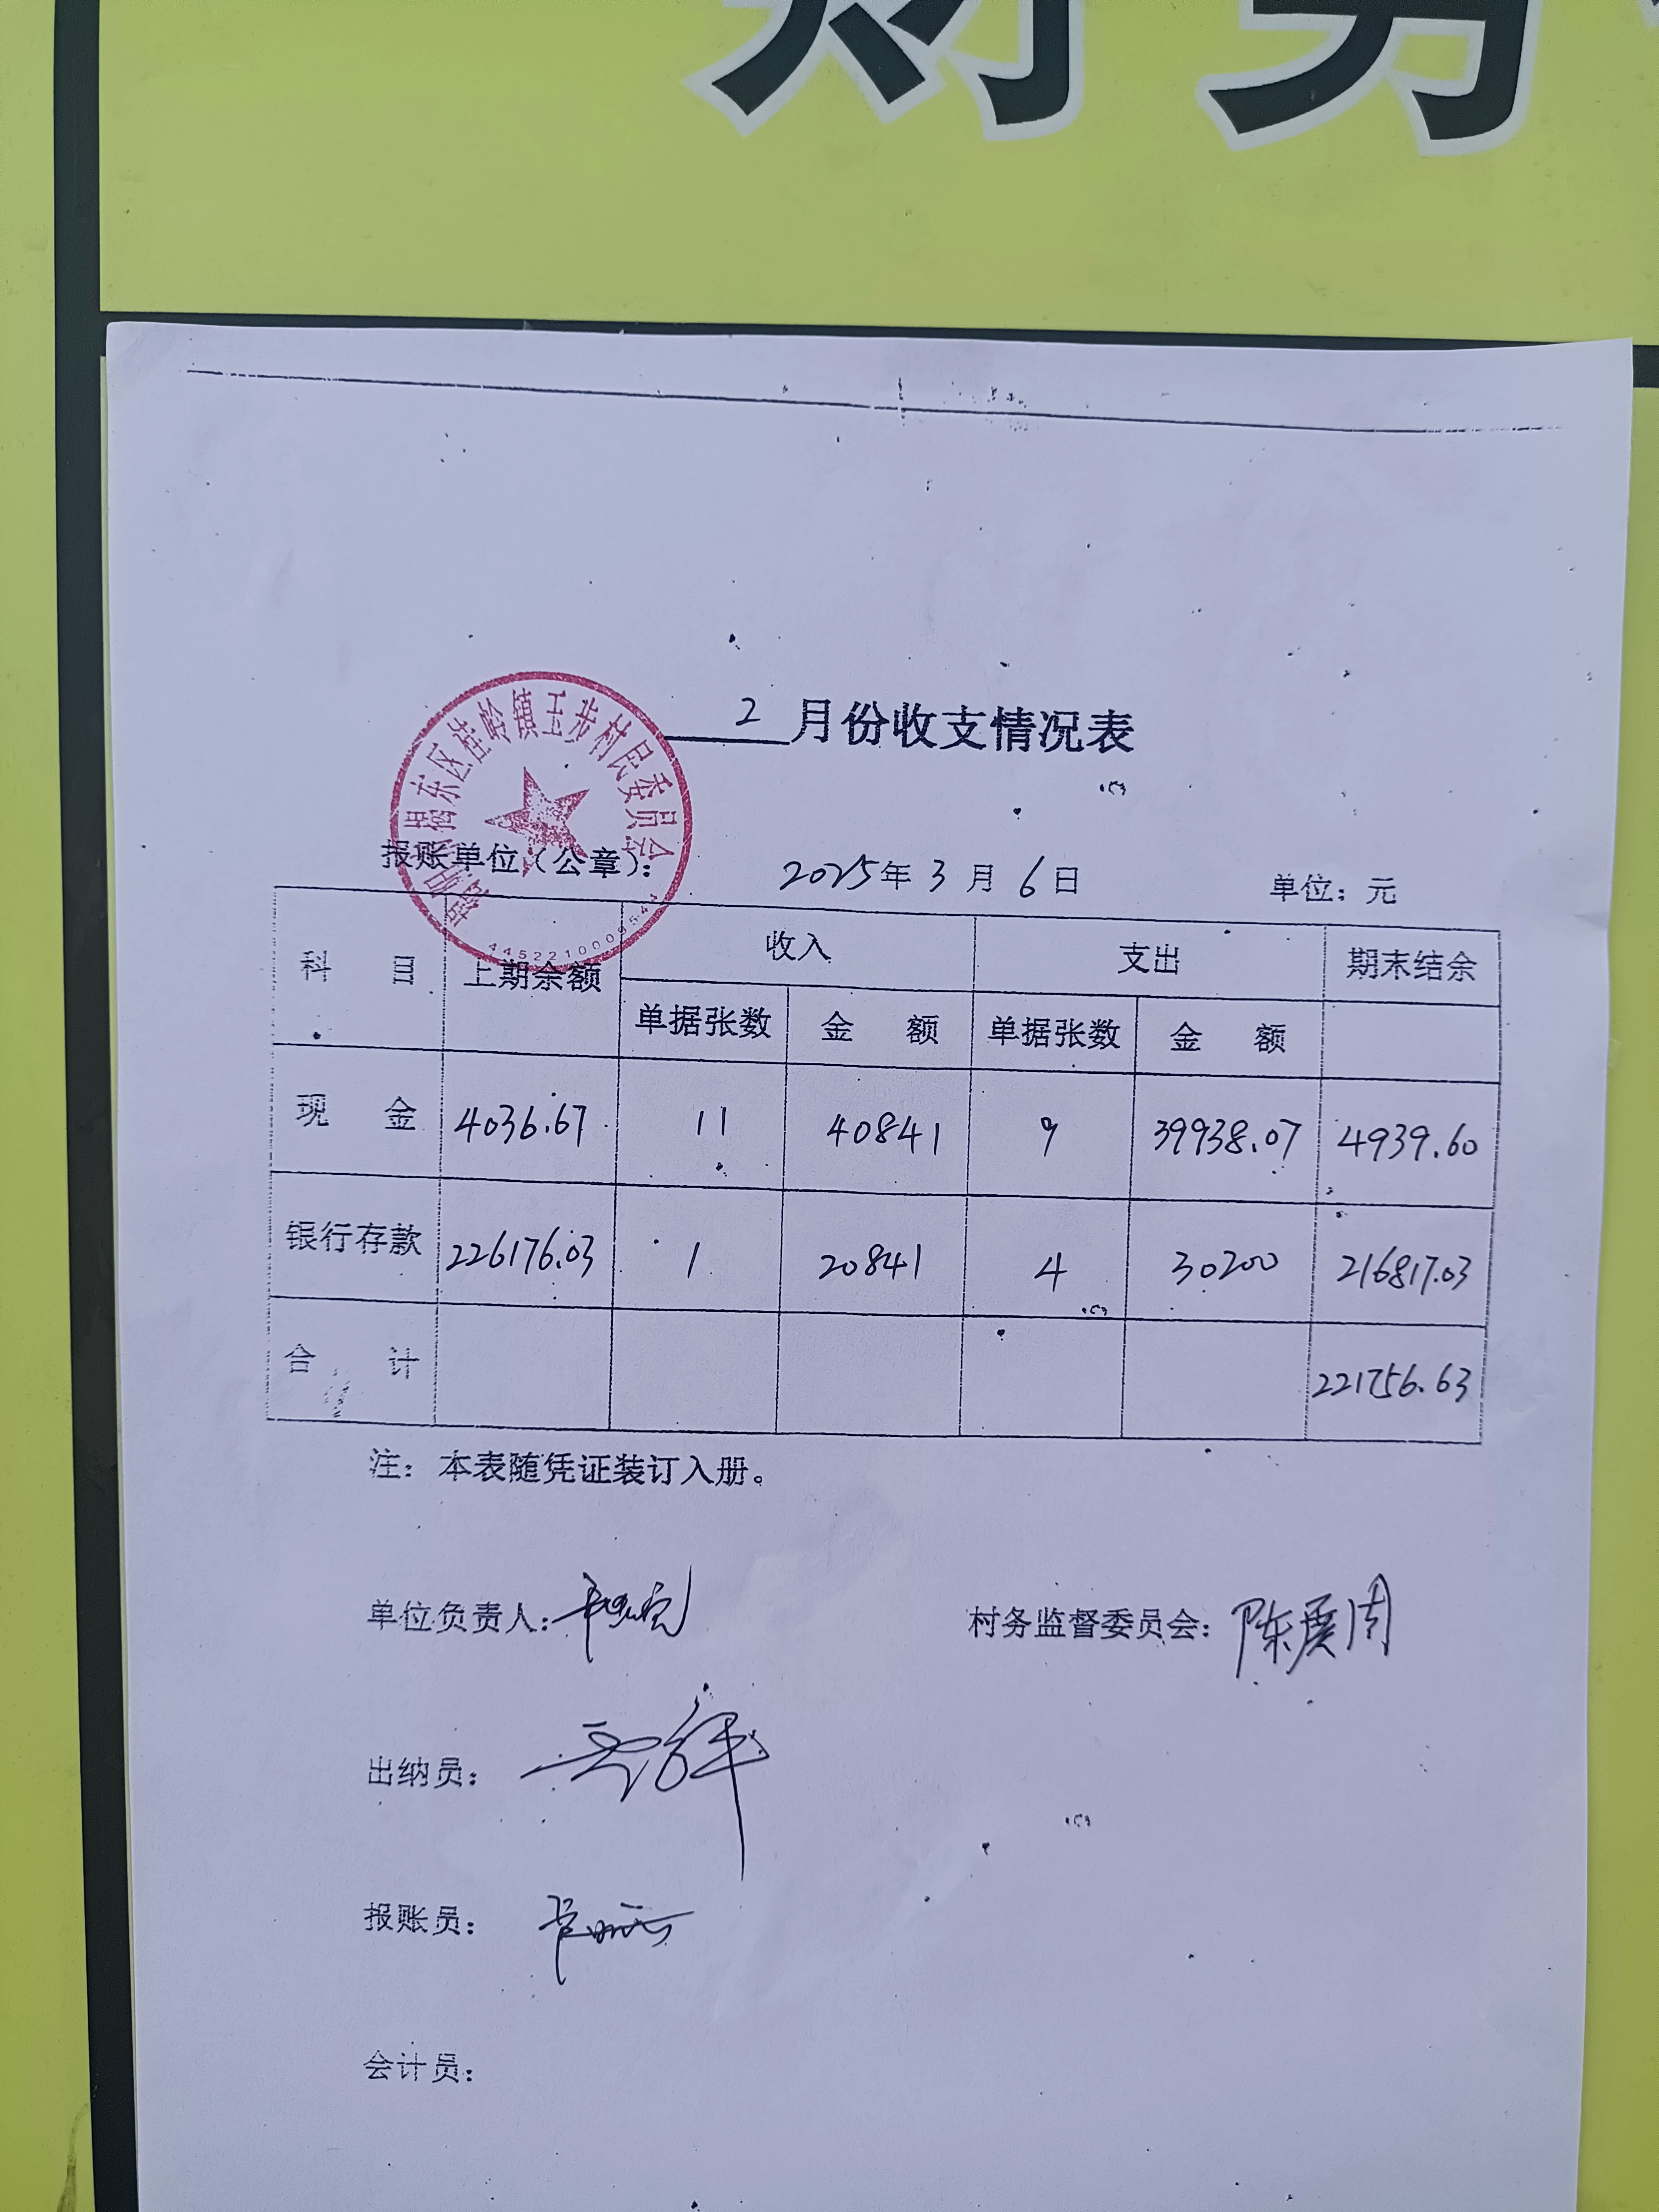 财务
2月份收支情况表
揭阳市揭东区桂岭镇玉步村民委员会
报账单位(公章): 2025年3月6日 单位:元
科目 上期余额 收入 支出 期末结余
单据张数 金额 单据张数 金额
现金 4036.67 11 40841 9 39938.07 4939.60
银行存款 226176.03 1 20841 4 30200 216817.03
合计 221756.63
注:本表随凭证装订入册。
单位负责人: 村务监督委员会:
出纳员:
报账员:
会计员: